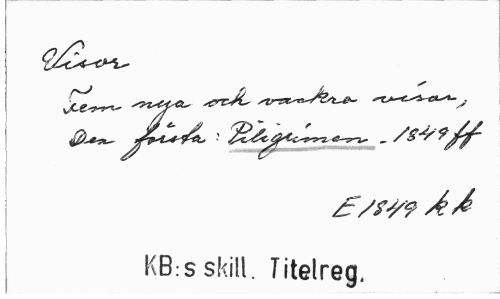 Visor
Fem nya och vackra visor,
Den första: Piligrimen. 1849 ff
E 1849 kk
KB:s skill. Titelreg.